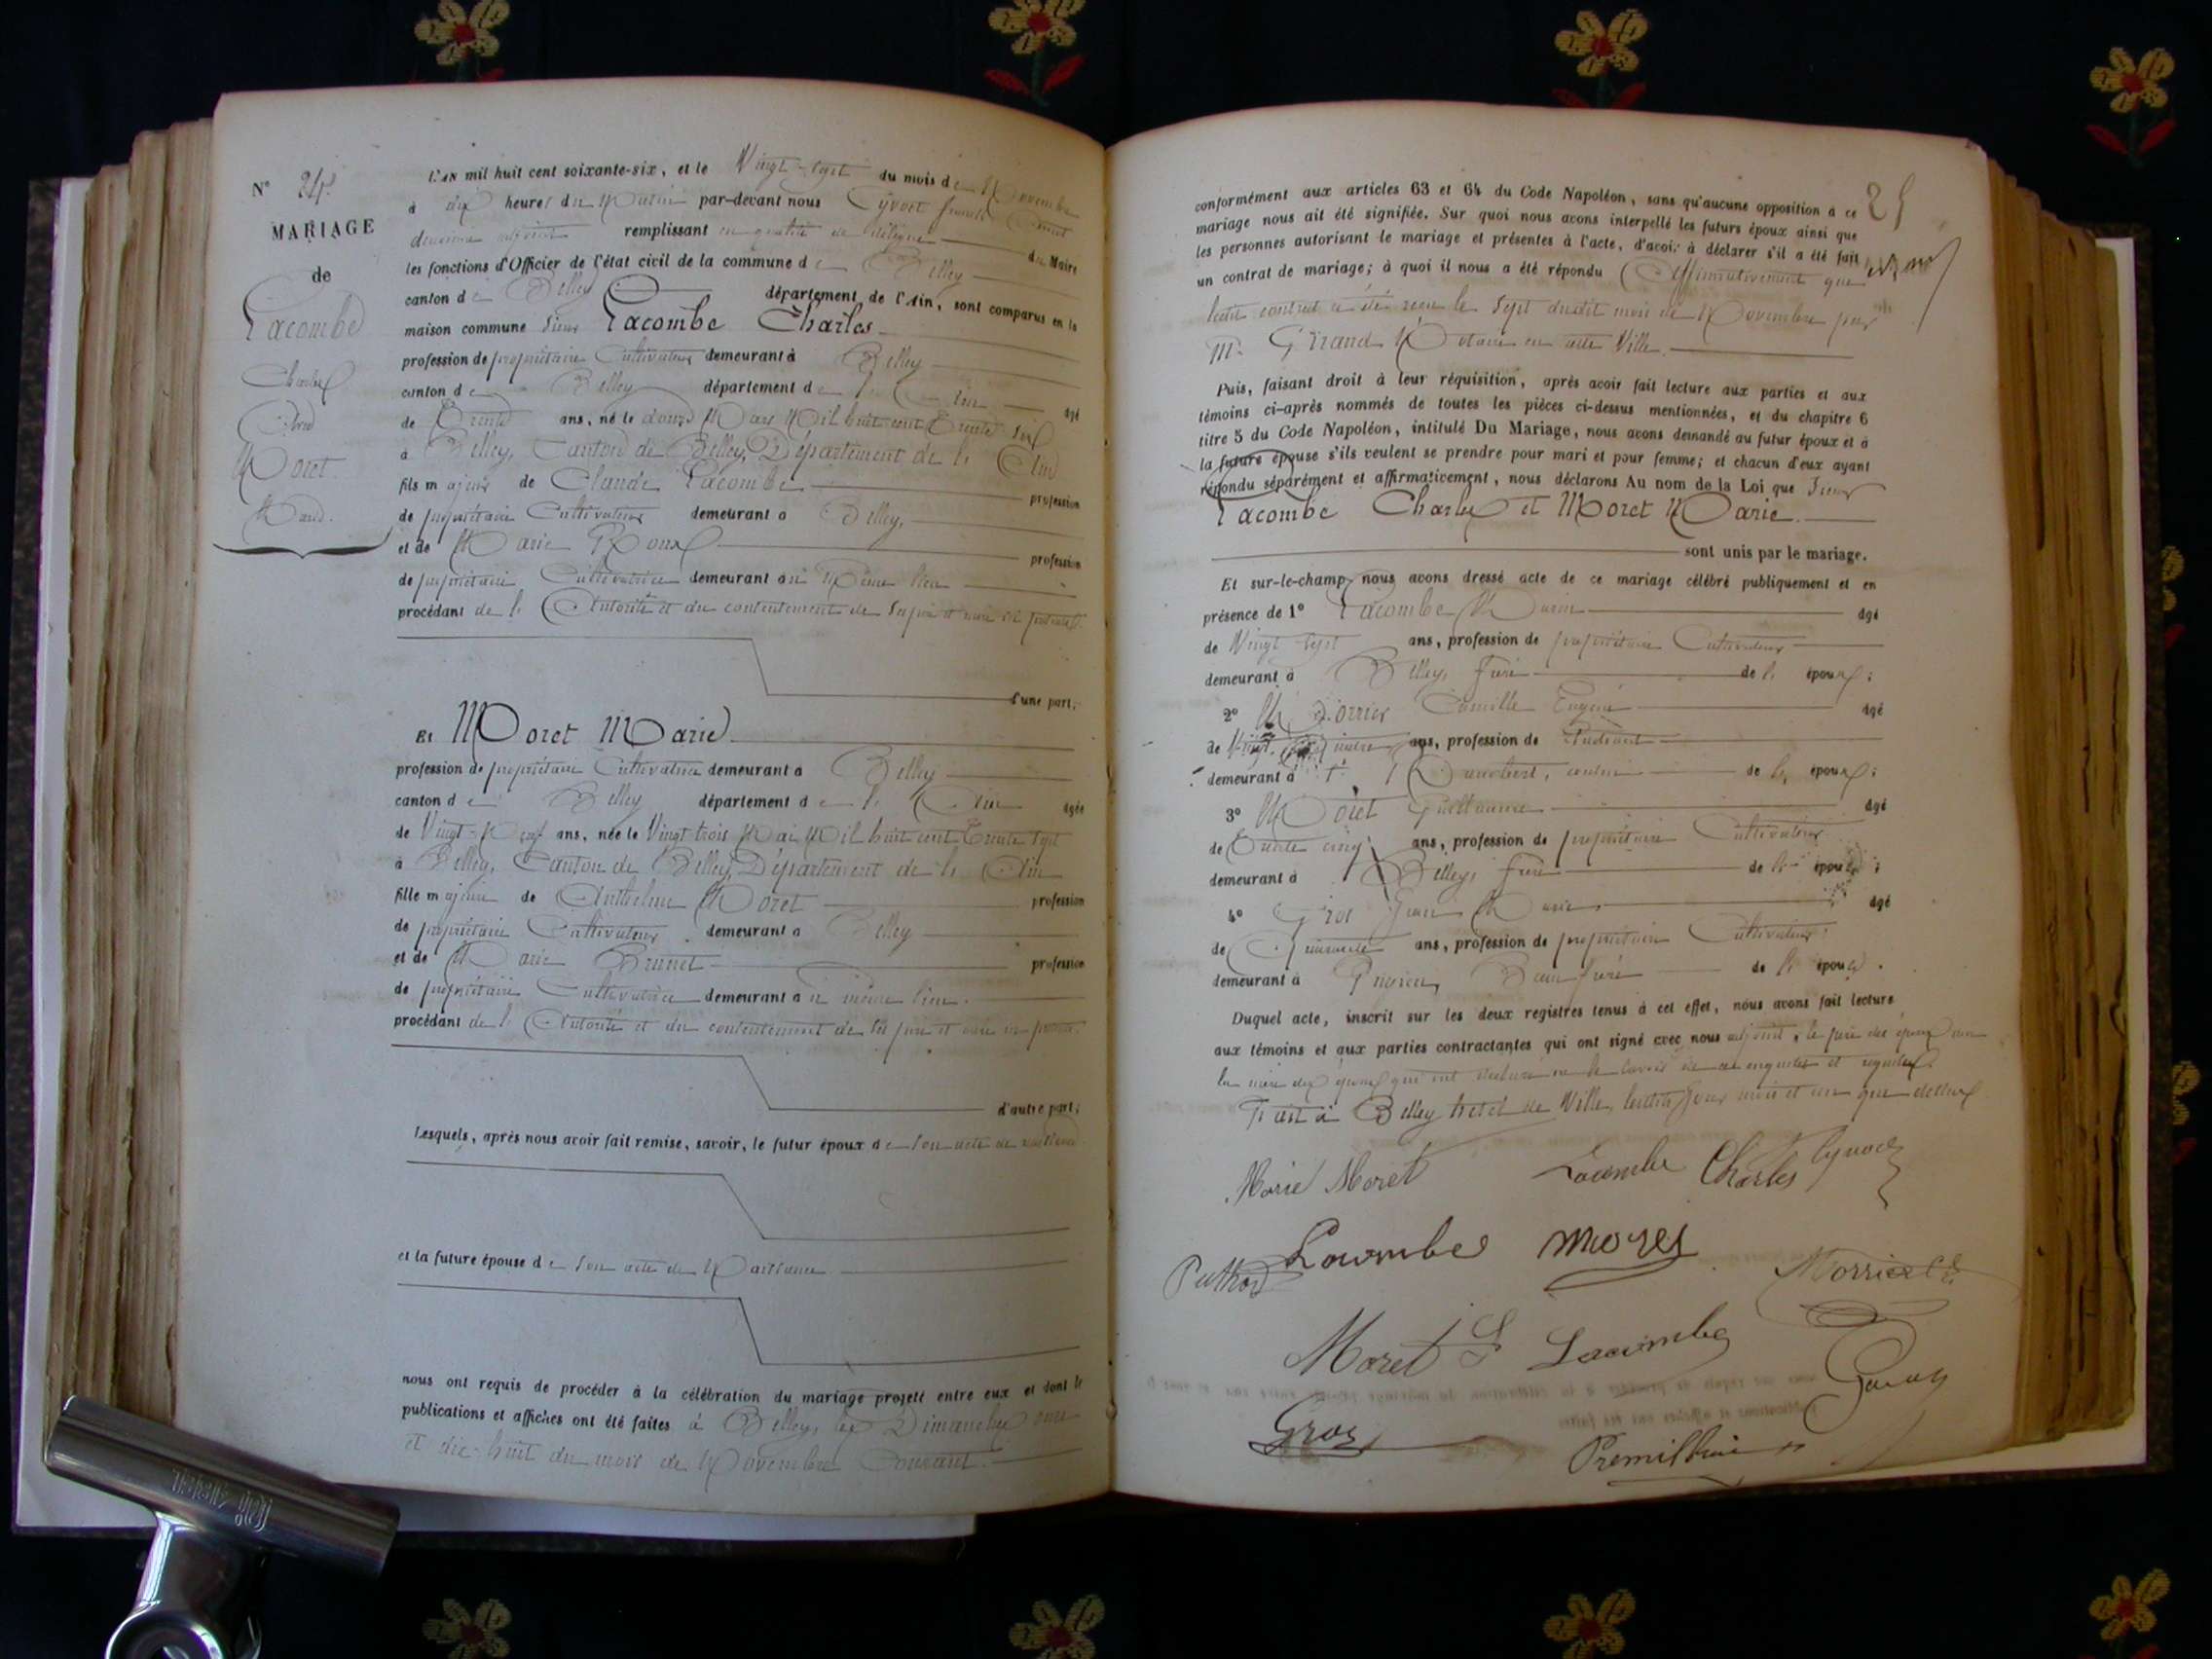 N° 24.
MARIAGE
de
Lacombe
Charles
Avec
Moret
Marie.
L'AN mil huit cent soixante-six, et le Vingt-sept du mois de Novembre
à dix heures du Matin par-devant nous Cyvoct
deuxième adjoint remplissant en qualité de délégué du Maire
les fonctions d'Officier de l'état civil de la commune de Belley
canton de Belley département de l'Ain, sont comparus en la
maison commune sieur Lacombe Charles
profession de propriétaire Cultivateur demeurant à Belley
canton de Belley département de l'Ain âgé
de Trente ans, né le douze Mars Mil huit cent Trente six
à Belley, Canton de Belley, Département de l'Ain
fils majeur de Claude Lacombe profession
de propriétaire Cultivateur demeurant à Belley,
et de Marie Roux profession
de propriétaire Cultivatrice demeurant au Même lieu
procédant de l'Autorité et du consentement de ses père et mère ici présents.
d'une part;
Et Moret Marie
profession de propriétaire Cultivatrice demeurant à Belley
canton de Belley département de l'Ain âgée
de Vingt-Neuf ans, née le Vingt trois Mai Mil huit cent Trente sept
à Belley, Canton de Belley, Département de l'Ain
fille majeure de Anthelme Moret profession
de propriétaire Cultivateur demeurant à Belley
et de Marie Brunet profession
de propriétaire Cultivatrice demeurant au même lieu.
procédant de l'Autorité et du consentement de ses père et mère ici présents.
d'autre part;
Lesquels, après nous avoir fait remise, savoir, le futur époux de son acte de naissance
et la future épouse de son acte de Naissance
nous ont requis de procéder à la célébration du mariage projeté entre eux et dont les
publications et affiches ont été faites à Belley, les Dimanches onze
et dix-huit du mois de Novembre Courant.
25
conformément aux articles 63 et 64 du Code Napoléon, sans qu'aucune opposition à ce
mariage nous ait été signifiée. Sur quoi nous avons interpellé les futurs époux ainsi que
les personnes autorisant le mariage et présentes à l'acte, d'avoir à déclarer s'il a été fait
un contrat de mariage; à quoi il nous a été répondu Affirmativement que
ledit contrat a été reçu le sept dudit mois de Novembre par
Me Girand Notaire en cette Ville.
Puis, faisant droit à leur réquisition, après avoir fait lecture aux parties et aux
témoins ci-après nommés de toutes les pièces ci-dessus mentionnées, et du chapitre 6
titre 5 du Code Napoléon, intitulé Du Mariage, nous avons demandé au futur époux et à
la future épouse s'ils veulent se prendre pour mari et pour femme; et chacun d'eux ayant
répondu séparément et affirmativement, nous déclarons Au nom de la Loi que sieur
Lacombe Charles et Moret Marie.
sont unis par le mariage.
Et sur-le-champ nous avons dressé acte de ce mariage célébré publiquement et en
présence de 1° Lacombe âgé
de Vingt-sept ans, profession de propriétaire Cultivateur
demeurant à Belley, frère de l'époux;
2° Morrier Camille Eugène âgé
de Vingt ans, profession de Etudiant
demeurant à St Rambert, cousin de l'époux;
3° Moret Guillaume âgé
de Trente cinq ans, profession de propriétaire Cultivateur
demeurant à Belley, frère de l'épouse;
4° Gros Jean Marie âgé
de Quarante ans, profession de propriétaire Cultivateur
demeurant à Pugieu, Beau frère de l'épouse.
Duquel acte, inscrit sur les deux registres tenus à cet effet, nous avons fait lecture
aux témoins et aux parties contractantes qui ont signé avec nous adjoint, le père des époux non
la mère des époux qui ont déclaré ne le savoir de ce enquises et requises.
Fait à Belley hotel de Ville, lesdits jour mois et an que dessus
Marie Moret Lacombe Charles Cyvoct
Lacombe Moret
Puthod Morrier C E
Moret G Lacombe
Gros